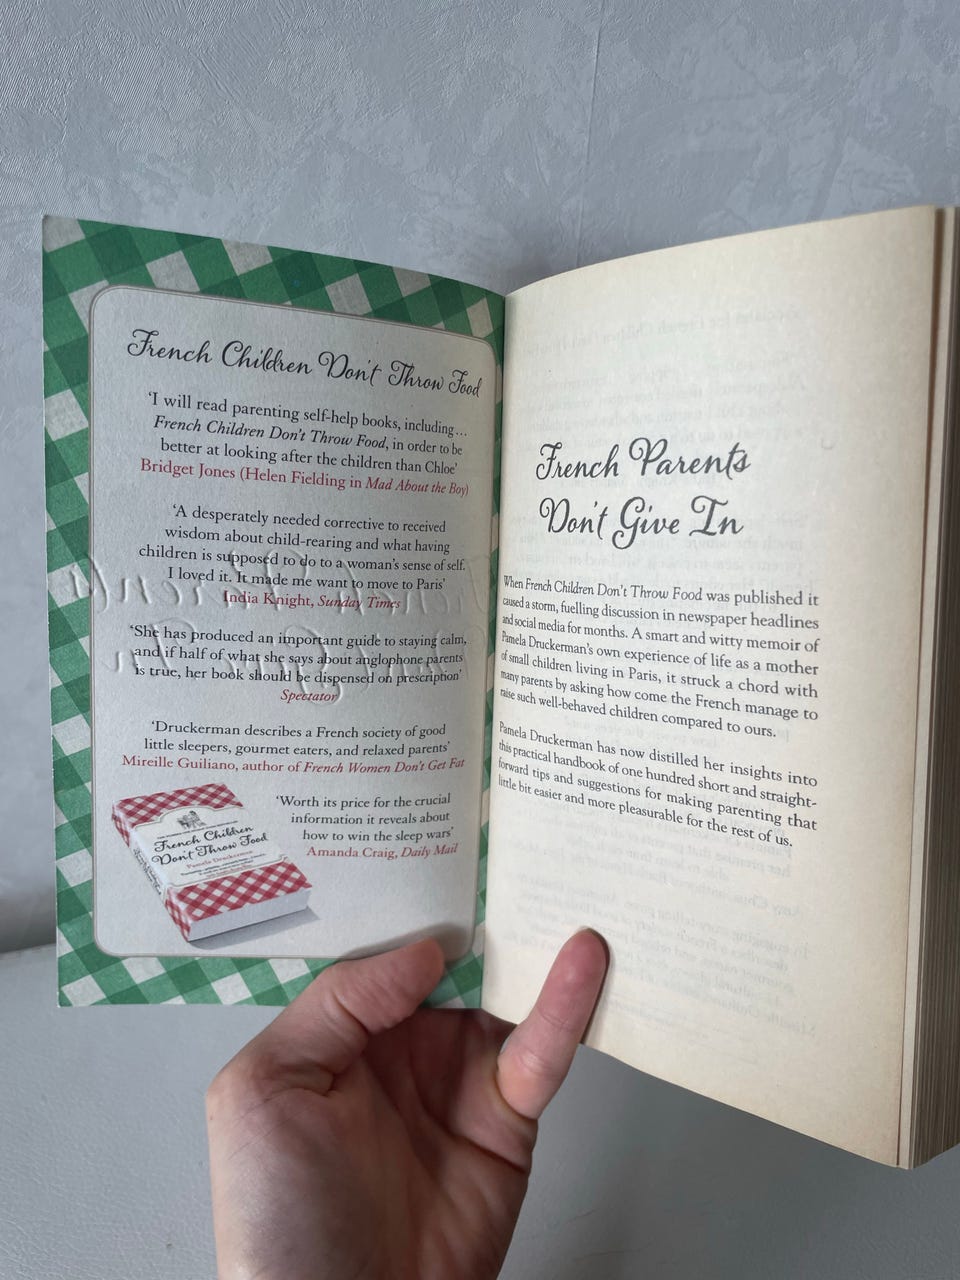 French Children Don't Throw Food
'I will read parenting self-help books, including…
French Children Don't Throw Food, in order to be
better at looking after the children than Chloe'
Bridget Jones (Helen Fielding in Mad About the Boy)
'A desperately needed corrective to received
wisdom about child-rearing and what having
children is supposed to do to a woman's sense of self.
I loved it. It made me want to move to Paris'
India Knight, Sunday Times
'She has produced an important guide to staying calm,
and if half of what she says about anglophone parents
is true, her book should be dispensed on prescription'
Spectator
'Druckerman describes a French society of good
little sleepers, gourmet eaters, and relaxed parents'
Mireille Guiliano, author of French Women Don't Get Fat
'Worth its price for the crucial
information it reveals about
how to win the sleep wars'
Amanda Craig, Daily Mail
French Children
Don't Throw Food
Pamela Druckerman
French Parents
Don't Give In
When French Children Don't Throw Food was published it
caused a storm, fuelling discussion in newspaper headlines
and social media for months. A smart and witty memoir of
Pamela Druckerman's own experience of life as a mother
of small children living in Paris, it struck a chord with
many parents by asking how come the French manage to
raise such well-behaved children compared to ours.
Pamela Druckerman has now distilled her insights into
this practical handbook of one hundred short and straight-
forward tips and suggestions for making parenting that
little bit easier and more pleasurable for the rest of us.